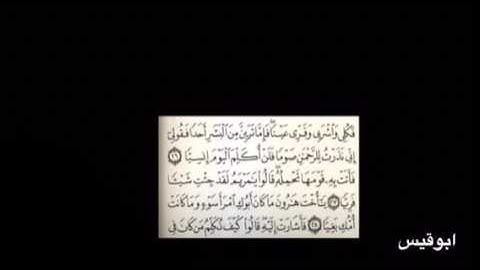 فَكُلِى وَٱشْرَبِى وَقَرِّى عَيْنًا فَإِمَّا تَرَيِنَّ مِنَ ٱلْبَشَرِ أَحَدًا فَقُولِىٓ
إِنِّى نَذَرْتُ لِلرَّحْمَٰنِ صَوْمًا فَلَنْ أُكَلِّمَ ٱلْيَوْمَ إِنسِيًّا ٢٦
فَأَتَتْ بِهِۦ قَوْمَهَا تَحْمِلُهُۥ قَالُوا۟ يَٰمَرْيَمُ لَقَدْ جِئْتِ شَيْـًٔا
فَرِيًّا ٢٧ يَٰٓأُخْتَ هَٰرُونَ مَا كَانَ أَبُوكِ ٱمْرَأَ سَوْءٍ وَمَا كَانَتْ
أُمُّكِ بَغِيًّا ٢٨ فَأَشَارَتْ إِلَيْهِ قَالُوا۟ كَيْفَ نُكَلِّمُ مَن كَانَ فِى
ابوقيس